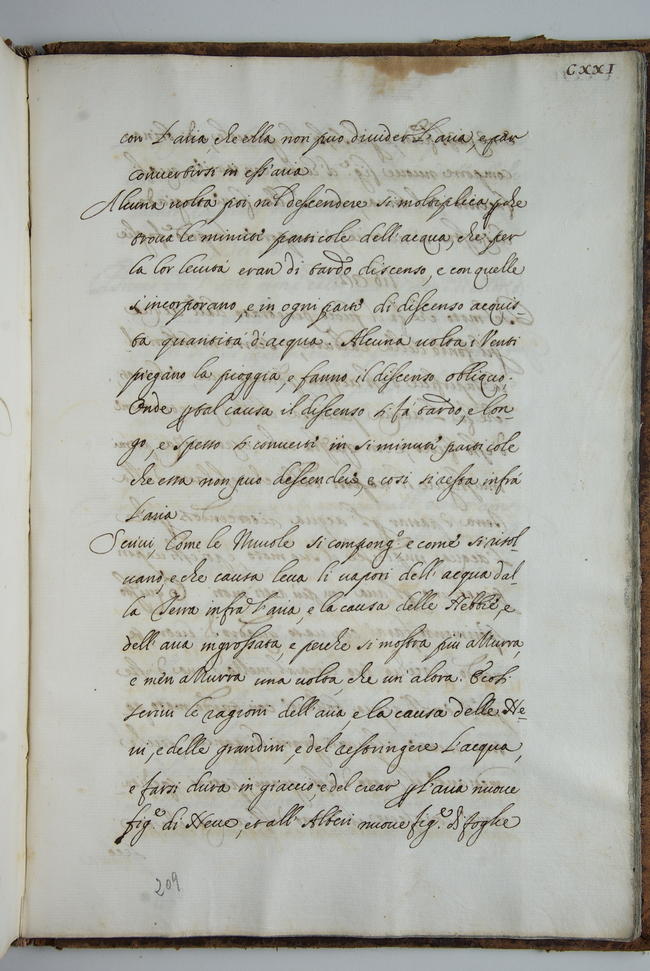 CXXI
con l'aria che ella non puo divider l'aria, e par
convertirsi in ess'aria
Alcuna volta poi nel descendere si moltiplica, perche
trova le minuti particole dell'acqua, che per
la lor levità eran di tardo discenso, e con quelle
s'incorporano, e in ogni parte di discenso acquis-
ta quantità d'acqua. Alcuna volta i Venti
piegano la pioggia, e fanno il discenso obliquo.
Onde per tal causa il discenso si fà tardo, e lon-
go, e spesso si converte in si minute particole
che essa non puo descendere, e così si resta infrà
l'aria
Scrivi, Come le Nuvole si compong.o e come si risol-
vano, e che causa leva li vapori dell'acqua dal-
la Terra infra l'aria, e la causa delle Nebbie, e
dell'aria ingrossata, e perche si mostra più azzurra,
e men azzurra una volta, che un altra. E così
scrivi le ragioni dell'aria, e la causa delle Ne-
vi, e delle grandini, e del restringere l'acqua,
e farsi dura in giaccio, e del crear per l'aria nuove
fig.e di Neve, et all' Alberi nuove fig.e di foglie
209